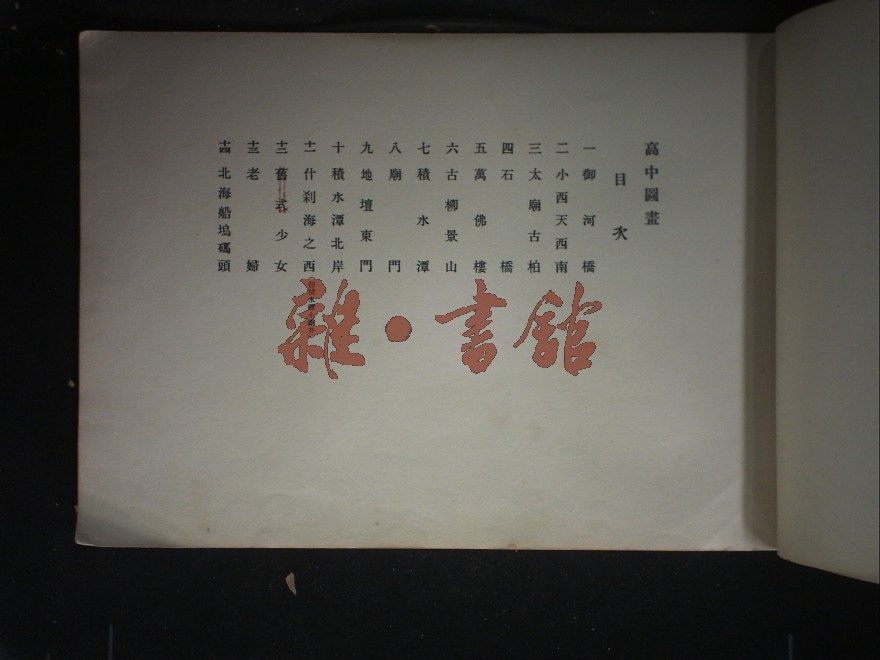 高中圖畫
目次
一 御河橋
二 小西天西南
三 太廟古柏
四 石橋
五 萬佛樓
六 古柳景山
七 積水潭
八 廟門
九 地壇東門
十 積水潭北岸
十一 什刹海之西
十二 舊式少女
十三 老婦
十四 北海船塢碼頭
雜·書館